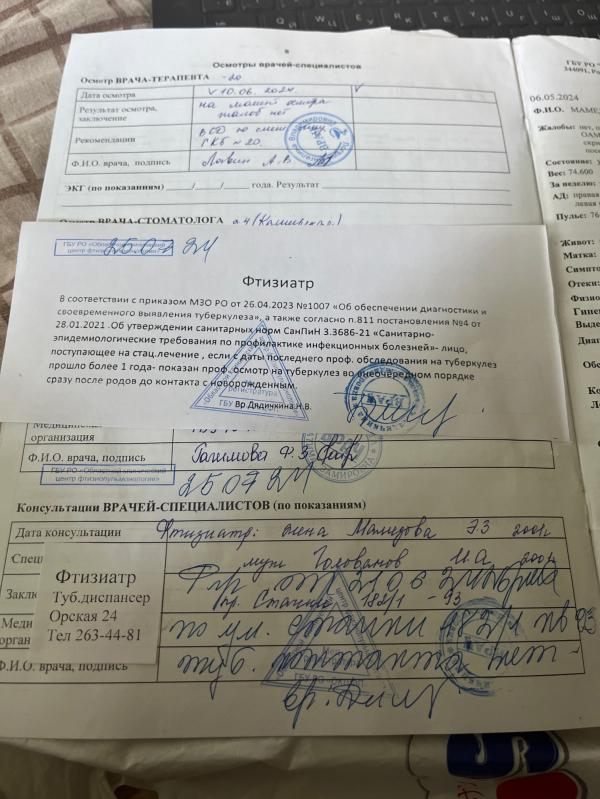 8
Осмотры врачей-специалистов
Осмотр ВРАЧА-ТЕРАПЕВТА -20
Дата осмотра V 10.06.2024 V
Результат осмотра, на момент осмотра
заключение жалоб нет
Рекомендации
ГКБ №20.
Ф.И.О. врача, подпись А.В.
ЭКГ (по показаниям) ____/____/____ года. Результат
Осмотр ВРАЧА-СТОМАТОЛОГА
ГБУ РО «Областной клинический
центр фтизиопульмонологии»
250724
Фтизиатр
В соответствии с приказом МЗО РО от 26.04.2023 №1007 «Об обеспечении диагностики и
своевременного выявления туберкулеза», а также согласно п.811 постановления №4 от
28.01.2021 .Об утверждении санитарных норм СанПиН 3.3686-21 «Санитарно-
эпидемиологические требования по профилактике инфекционных болезней»- лицо,
поступающее на стац.лечение , если с даты последнего проф. обследования на туберкулез
прошло более 1 года- показан проф. осмотр на туберкулез во внеочередном порядке
сразу после родов до контакта с новорожденным.
Вр.Дядичкина.Н.В.
регистратура
ГБУ
ВРАЧ
Медицинская
организация
Ф.И.О. врача, подпись Галимова Ф.З.
ГБУ РО «Областной клинический
центр фтизиопульмонологии»
250724
Консультации ВРАЧЕЙ-СПЕЦИАЛИСТОВ (по показаниям)
Дата консультации Фтизиатр: жена Мамедова Э.З 2001г
муж Голованов И.А 2001г
Фтизиатр
Туб.диспансер
Орская 24
Тел 263-44-81
Флг от 210624 норма
182/1 - 93
по ул. 182/1 кв 93
туб. контакта нет -
Ф.И.О. врача, подпись
вр.
ГБУ РО
344091, Ро
06.05.2024
Ф.И.О. МАМЕД
Жалобы: нет, п
ОАМ
скри
посе
Состояние: у
Вес: 74.600
За неделю:
АД: правая
левая
Пульс: 76
Живот:
Матка:
Симпто
Отеки:
Физио
Гинек
Выде
Диаг
Обсе
Ле